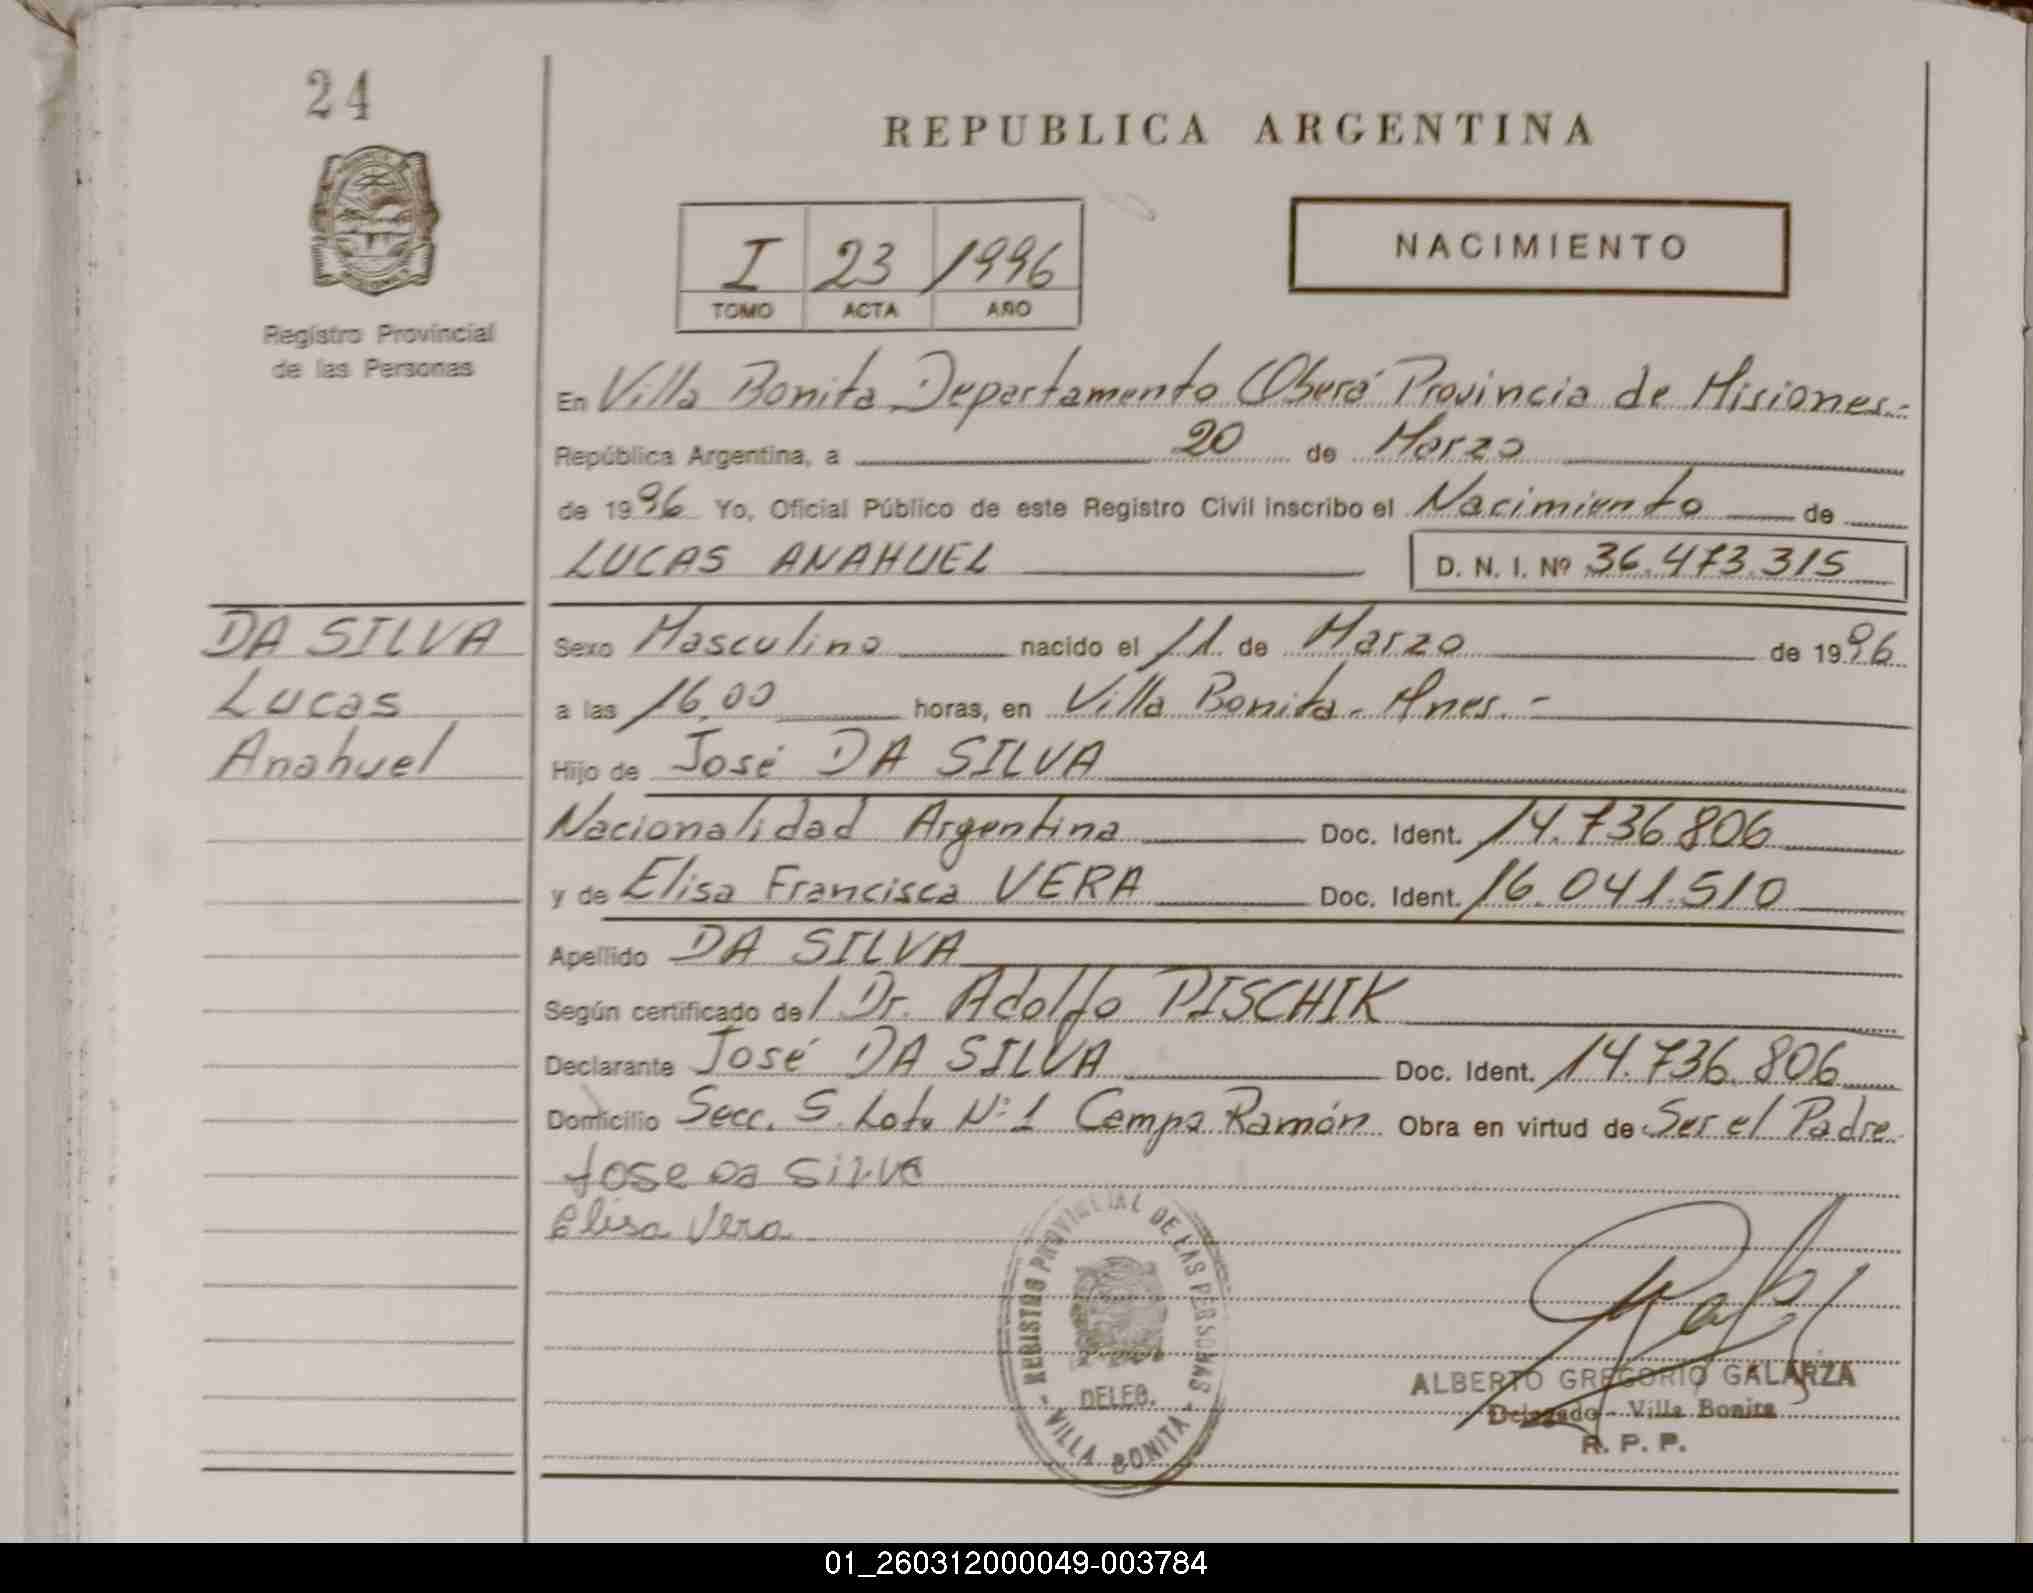 24
REPUBLICA ARGENTINA
NACIMIENTO
I 23 1996
TOMO ACTA AÑO
Registro Provincial
de las Personas
En Villa Bonita Departamento Oberá Provincia de Misiones.-
República Argentina, a 20 de Marzo
de 1996 Yo, Oficial Público de este Registro Civil inscribo el Nacimiento de
LUCAS ANAHUEL D. N. I. Nº 36.473.315
DA SILVA
Lucas
Anahuel
Sexo Masculino nacido el 11 de Marzo de 1996
a las 16,00 horas, en Villa Bonita. Mnes.-
Hijo de José DA SILVA
Nacionalidad Argentina Doc. Ident. 14.736.806
y de Elisa Francisca VERA Doc. Ident. 16.041.510
Apellido DA SILVA
Según certificado del Dr. Adolfo PISCHIK
Declarante José DA SILVA Doc. Ident. 14.736.806
Domicilio Secc. 5. Lote Nº 1 Campo Ramón Obra en virtud de Ser el Padre
Jose Da Silva
Elisa Vera
REGISTRO PROVINCIAL DE LAS PERSONAS
DELEG.
- VILLA BONITA -
ALBERTO GREGORIO GALARZA
Delegado - Villa Bonita
R. P. P.
01_260312000049-003784